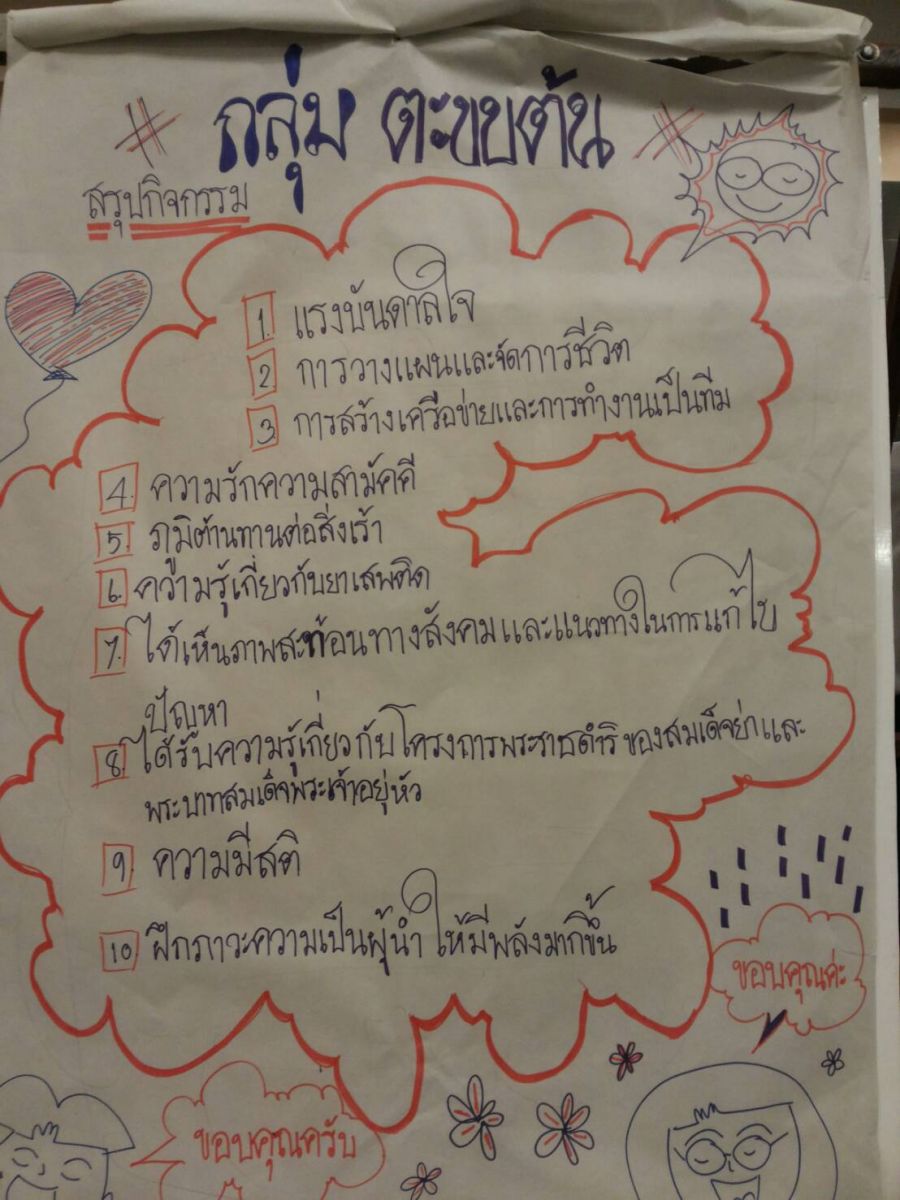 # กลุ่ม ตะขบต้น #
สรุปกิจกรรม
1. แรงบันดาลใจ
2 การวางแผนและจัดการชีวิต
3 การสร้างเครือข่ายและการทำงานเป็นทีม
4. ความรักความสามัคคี
5. ภูมิต้านทานต่อสิ่งเร้า
6. ความรู้เกี่ยวกับยาเสพติด
7. ได้เห็นภาพสะท้อนทางสังคมและแนวทางในการแก้ไข
ปัญหา
8. ได้รับความรู้เกี่ยวกับโครงการพระราชดำริ ของสมเด็จย่าและ
พระบาทสมเด็จพระเจ้าอยู่หัว
9. ความมีสติ
10. ฝึกภาวะความเป็นผู้นำ ให้มีพลังมากขึ้น
ขอบคุณค่ะ
ขอบคุณครับ